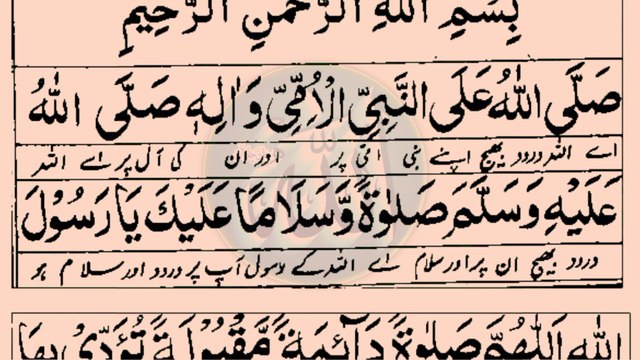 بِسْمِ اللهِ الرَّحْمٰنِ الرَّحِيْمِ
صَلَّى اللهُ عَلَى النَّبِيِّ الْاُمِّيِّ وَاٰلِهٖ صَلَّى اللهُ
اے اللہ درود بھیج اپنے نبی امی پر اور ان کی آل پر اے اللہ
عَلَيْهِ وَسَلَّمَ صَلٰوةً وَّسَلَامًا عَلَيْكَ يَا رَسُوْلَ
درود بھیج ان پر اور سلام اے اللہ کے رسول آپ پر درود اور سلام ہو
اللهِ اَللّٰهُمَّ صَلٰوةً دَآئِمَةً مَّقْبُوْلَةً تُؤَدِّيْ بِهَا